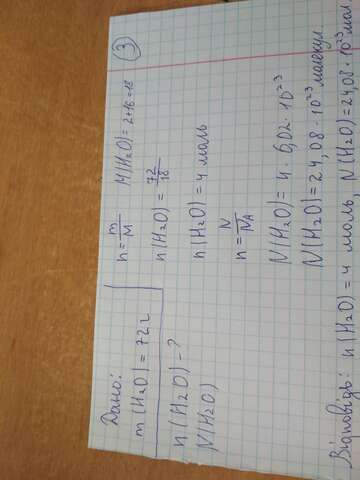 ③
Дано:
m(H₂O) = 72 г
n(H₂O) - ?
N(H₂O)
n = m/M M(H₂O) = 2+16=18
n(H₂O) = 72/18
n(H₂O) = 4 моль
n = N/Nᴀ
N(H₂O) = 4 · 6,02 · 10²³
N(H₂O) = 24,08 · 10²³ молекул.
Відповідь: n(H₂O) = 4 моль, N(H₂O) = 24,08 · 10²³ мол